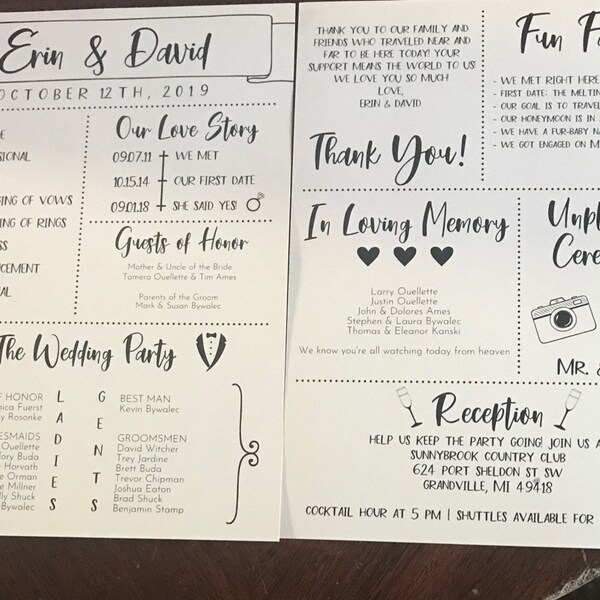 Erin & David
OCTOBER 12TH, 2019
Our Love Story
09.07.11 WE MET
10.15.14 OUR FIRST DATE
09.01.18 SHE SAID YES!
GING OF VOWS
ING OF RINGS
Guests of Honor
Mother & Uncle of the Bride
Tamera Ouellette & Tim Ames
Parents of the Groom
Mark & Susan Bywalec
The Wedding Party
LADIES
GENTS
F HONOR
ica Fuerst
y Rosonke
ESMAIDS
Ouellette
lory Buda
Horvath
e Orman
e Millner
lly Shuck
Bywalec
BEST MAN
Kevin Bywalec
GROOMSMEN
David Witcher
Trey Jardine
Brett Buda
Trevor Chipman
Joshua Eaton
Brad Shuck
Benjamin Stamp
THANK YOU TO OUR FAMILY AND
FRIENDS WHO TRAVELED NEAR AND
FAR TO BE HERE TODAY! YOUR
SUPPORT MEANS THE WORLD TO US
WE LOVE YOU SO MUCH
LOVE,
ERIN & DAVID
Thank You!
Fun F
- WE MET RIGHT HERE
- FIRST DATE: THE MELTIN
- OUR GOAL IS TO TRAVEL
- OUR HONEYMOON IS IN
- WE HAVE A FUR-BABY NA
- WE GOT ENGAGED ON M
In Loving Memory
Larry Ouellette
Justin Ouellette
John & Dolores Ames
Stephen & Laura Bywalec
Thomas & Eleanor Kanski
We know you're all watching today from heaven
Unpl
Cere
MR. &
Reception
HELP US KEEP THE PARTY GOING! JOIN US A
SUNNYBROOK COUNTRY CLUB
624 PORT SHELDON ST SW
GRANDVILLE, MI 49418
COCKTAIL HOUR AT 5 PM | SHUTTLES AVAILABLE FOR